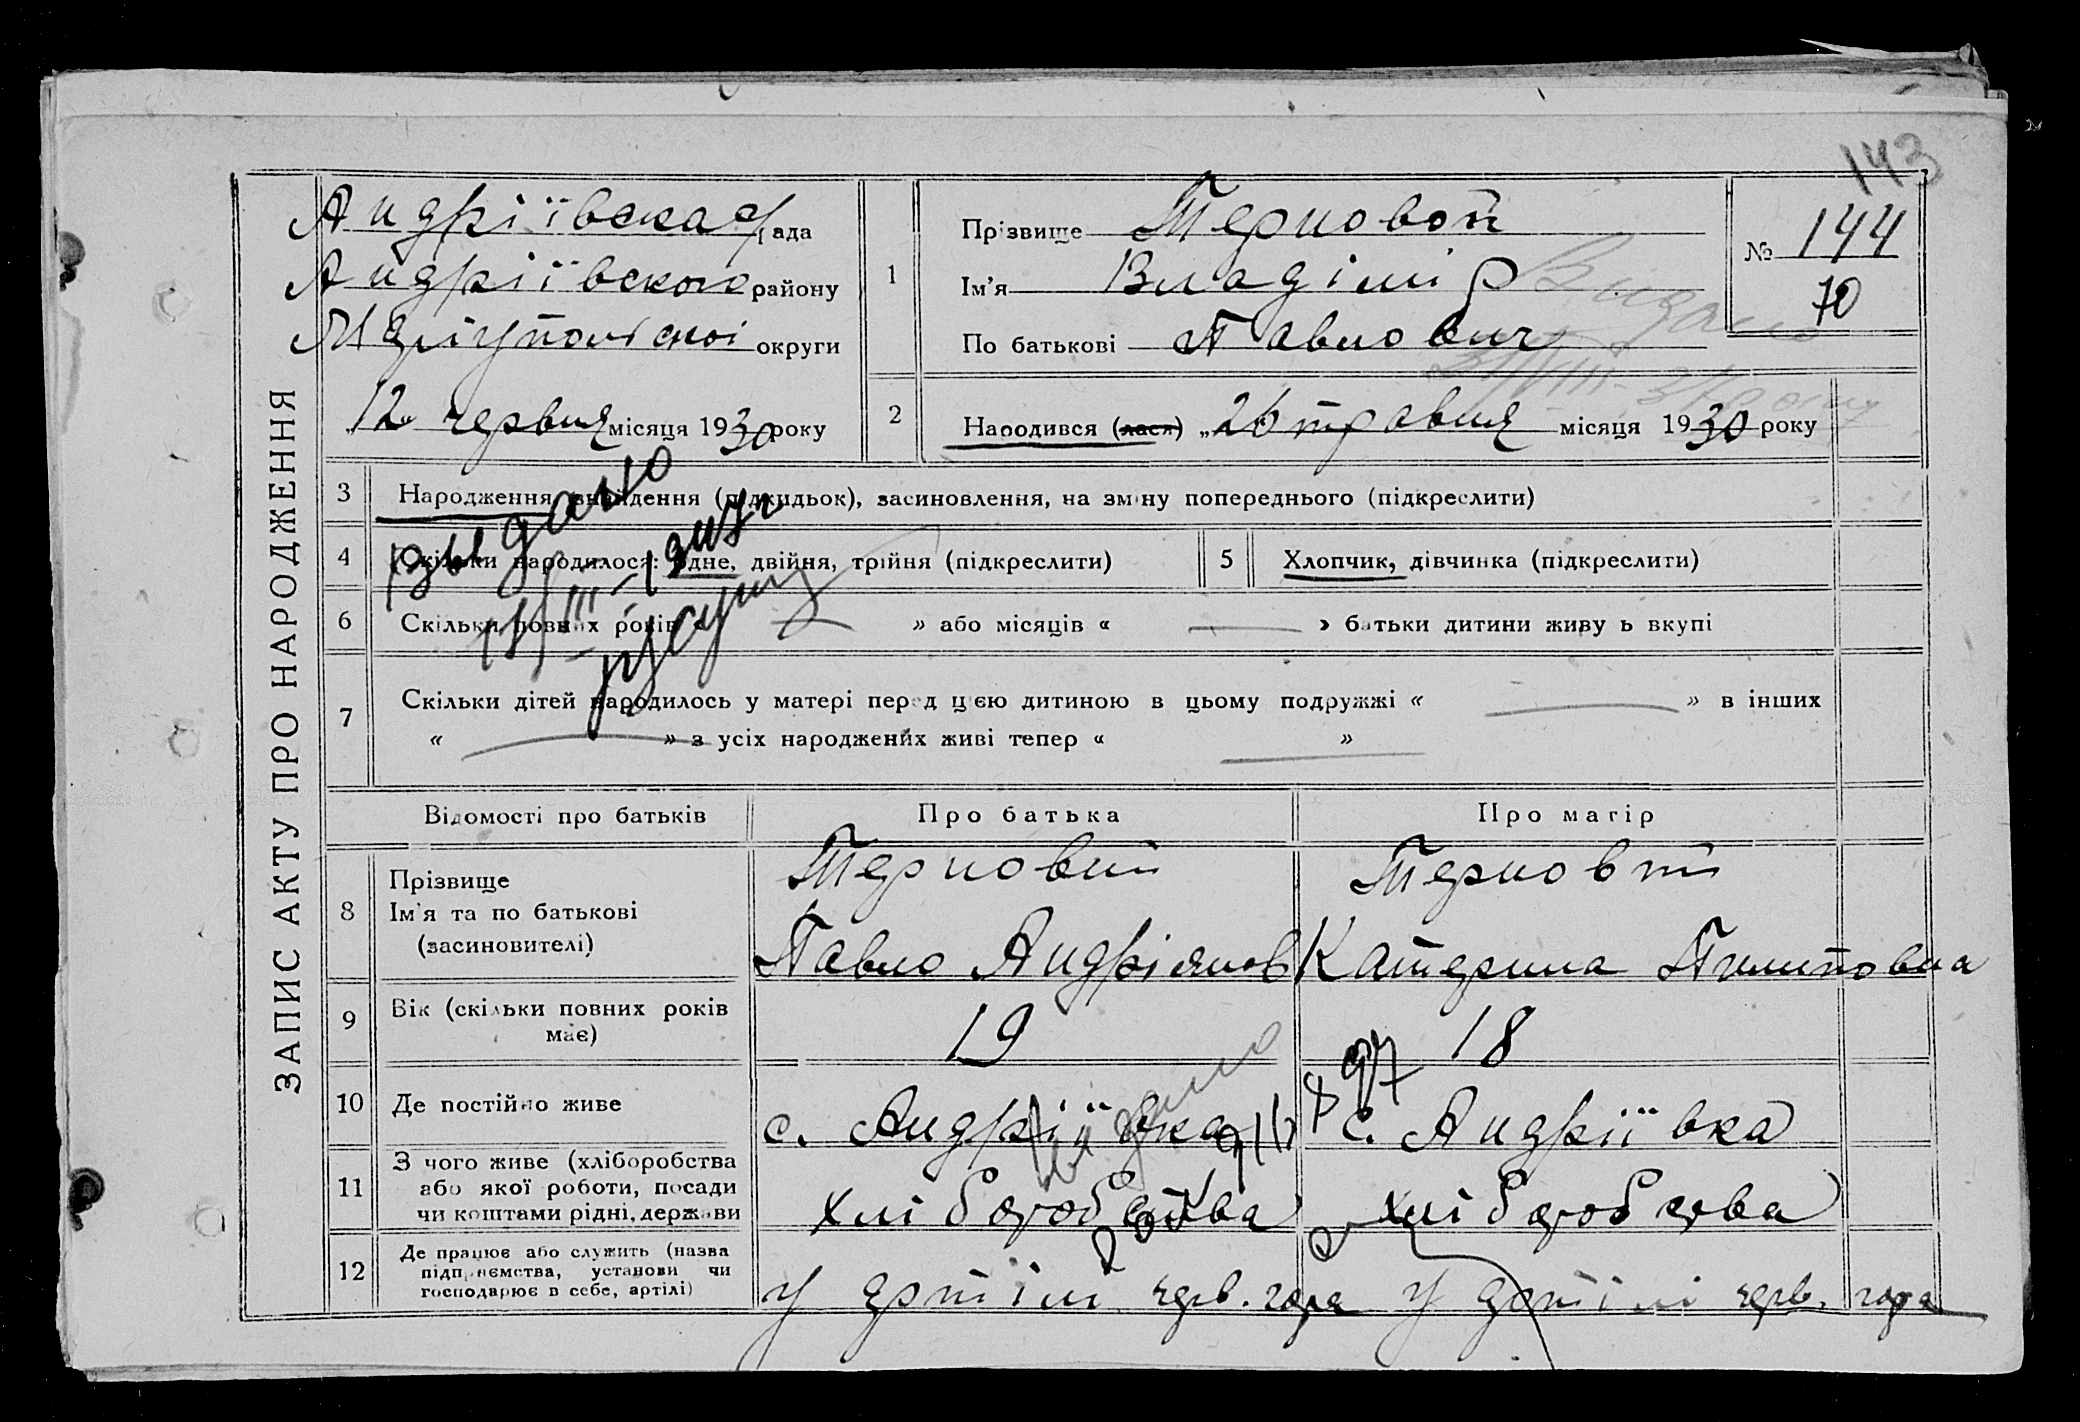 143
ЗАПИС АКТУ ПРО НАРОДЖЕННЯ
Андріївска рада
Андріївского району
Меліупольскоі округи
„12„ червня місяця 1930 року
1
Прізвище Терновой
Ім'я Владімір
По батькові Павлович
№ 144
70
Видано
2
Народився (лася) „26 травня місяця 1930 року
3 Народження, знайдення (підкидьок), засиновлення, на зміну попереднього (підкреслити)
4 Скільки народилося: одне, двійня, трійня (підкреслити)
5 Хлопчик, дівчинка (підкреслити)
выдано
6 Скільки повних років « — » або місяців « — » батьки дитини живуть вкупі
7 Скільки дітей народилось у матері перед цією дитиною в цьому подружжі « — » в інших
« — » з усіх народжених живі тепер « — »
Відомості про батьків Про батька Про матір
8 Прізвище
Ім'я та по батькові
(засиновителі)
Терновий
Павло Андріянов
Терновий
Катерина Пилиповна
9 Вік (скільки повних років має)
19
18
10 Де постійно живе
с. Андріївка
с. Андріївка
Видано
11 З чого живе (хліборобства
або якої роботи, посади
чи коштами рідні, держави
хліборобства
хліборобства
12 Де працює або служить (назва
підприємства, установи чи
господарює в себе, артілі)
у артілі черв. гора
у артілі черв. гора